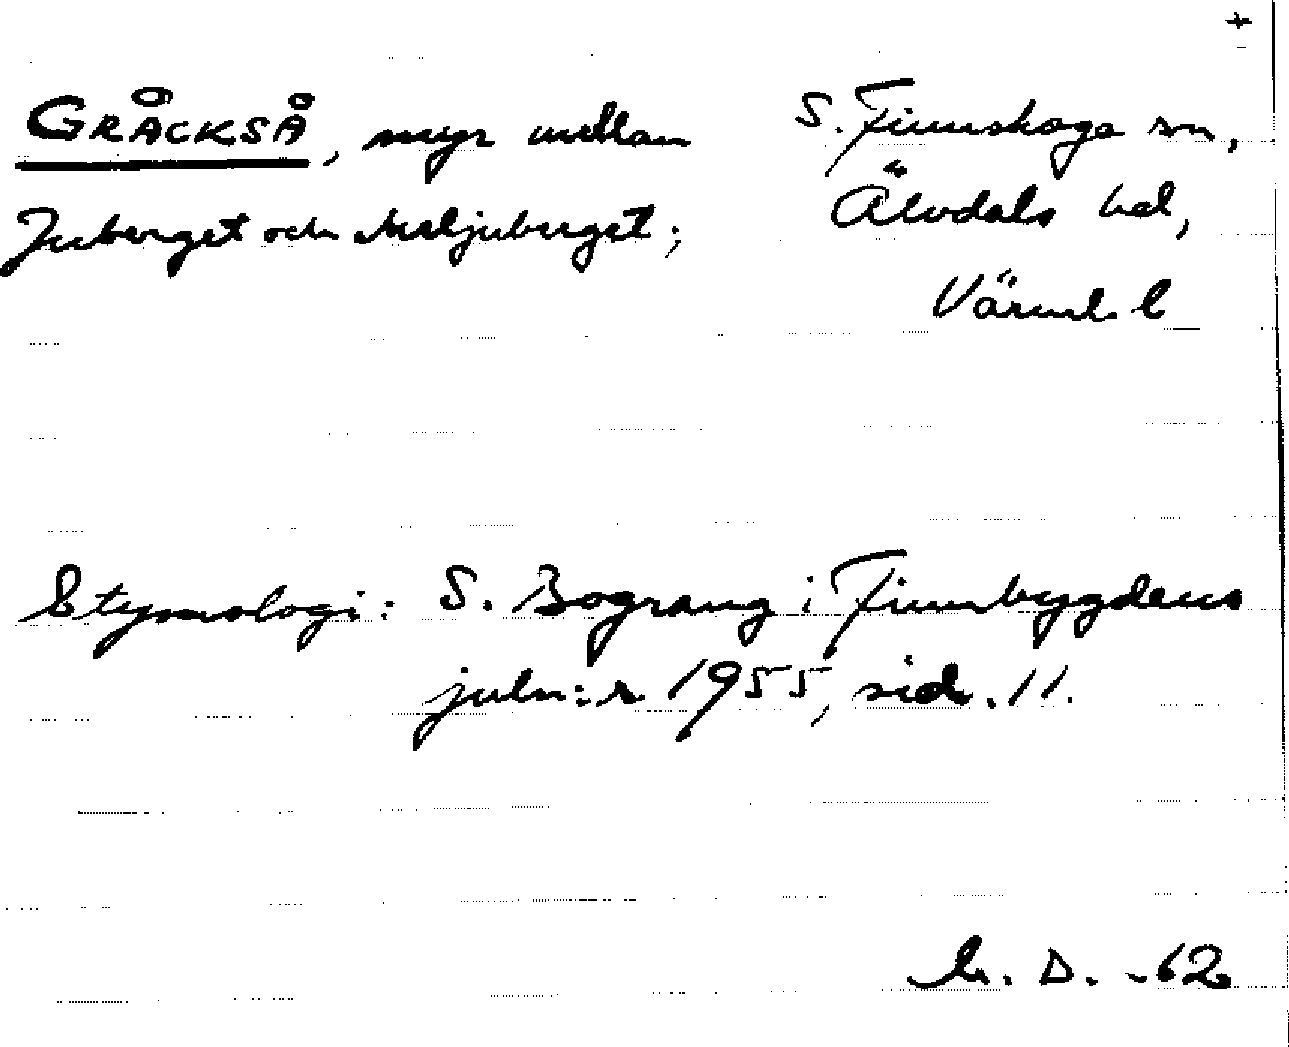 +
GRÅCKSÅ, myr mellan
Juberget och Meljuberget;
S. Finnskoga sn,
Älvdals hd,
Värml. l
Etymologi: S. Bograng i Finnbygdens
juln:r 1955, sid. 11.
D. -62